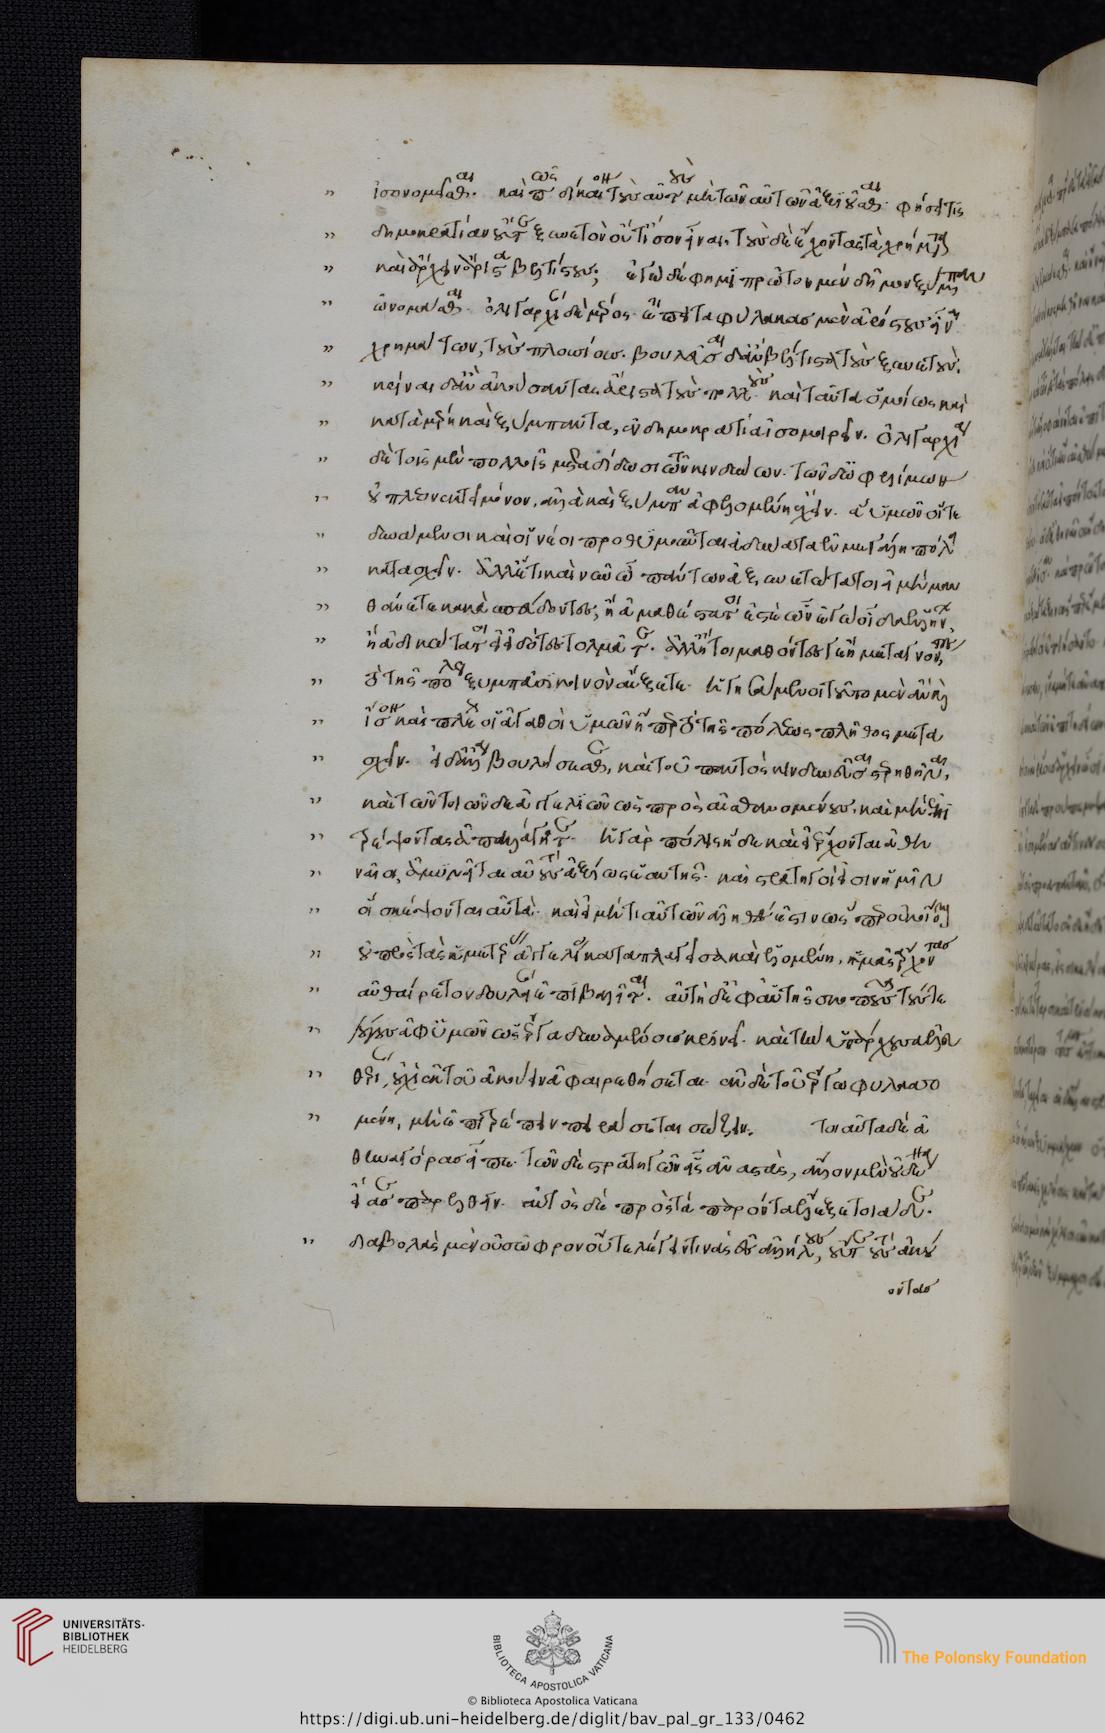 ἰσονομεῖσθαι. καὶ πῶς δίκαιον τοὺς αὐτοὺς μὴ τῶν αὐτῶν ἀξιοῦσθαι. φήσει τις
δημοκρατίαν οὔτε ξυνετὸν οὔτ' ἴσον εἶναι, τοὺς δὲ ἔχοντας τὰ χρήματα
καὶ ἄρχειν ἄριστα βελτίστους; ἐγὼ δέ φημι πρῶτον μὲν δῆμον ξύμπαν
ὠνομάσθαι. ὀλιγαρχίαν δὲ μέρος. ἔπειτα φύλακας μὲν ἀρίστους εἶναι
χρημάτων, τοὺς πλουσίους. βουλεῦσαι δ' ἂν βέλτιστα τοὺς ξυνετούς.
κρῖναι δ' ἂν ἀκούσαντας ἄριστα τοὺς πολλούς. καὶ ταῦτα ὁμοίως καὶ
κατὰ μέρη καὶ ξύμπαντα, ἐν δημοκρατίᾳ ἰσομοιρεῖν. ὀλιγαρχία
δὲ τοῖς μὲν πολλοῖς μεταδίδωσι τῶν κινδύνων. τῶν δ' ὠφελίμων
οὐ πλεονεκτεῖ μόνον, ἀλλὰ καὶ ξύμπαν ἀφελομένη ἔχειν. ἃ ὑμῶν οἵ τε
δυνάμενοι καὶ οἱ νέοι προθυμοῦνται ἀδύνατα ἐν μεγάλῃ πόλει
κατασχεῖν. ἀλλ' ἔτι καὶ νῦν ὦ πάντων ἀξυνετώτατοι εἰ μὴ μαν
θάνετε κακὰ σπεύδοντες, ἢ ἀμαθέστατοί ἐστε ὧν ἐγὼ οἶδα ἑλλήνων,
ἢ ἀδικώτατοι εἰ εἰδότες τολμᾶτε. ἀλλ' ἤτοι μαθόντες γε ἢ μεταγνόντες,
τὸ τῆς πόλεως ξύμπασι κοινὸν αὔξετε. ἡγησάμενοι τοῦτο μὲν ἂν καὶ
ἴσον καὶ πλέον οἱ ἀγαθοὶ ὑμῶν ἤπερ τὸ τῆς πόλεως πλῆθος μετα
σχεῖν. εἰ δ' ἄλλα βουλήσεσθε, καὶ τοῦ παντὸς κινδυνεῦσαι στερηθῆναι,
καὶ τῶν τοιῶνδε ἀγγελιῶν ὡς πρὸς αἰσθανομένους, καὶ μὴ ἐπι
τρέψοντας ἀπαλλάγητε. ἡ γὰρ πόλις ἥδε καὶ εἰ ἔρχονται ἀθη
ναῖοι, ἀμυνεῖται αὐτοὺς ἀξίως αὐτῆς. καὶ στρατηγοί εἰσιν ἡμῖν
οἳ σκέψονται αὐτά. καὶ εἰ μή τι αὐτῶν ἀληθές ἐστιν ὥσπερ οὐκ οἴομαι
οὐ πρὸς τὰς ὑμετέρας ἀγγελίας καταπλαγεῖσα καὶ ἑλομένη, ὑμᾶς ἄρχοντας
αὐθαίρετον δουλείαν ἐπιβαλεῖται. αὐτὴ δ' ἐφ' αὑτῆς σκοποῦσα τούς τε
λόγους ἀφ' ὑμῶν ὡς ἔργα δυναμένους κρινεῖ. καὶ τὴν ὑπάρχουσαν ἐλευ
θερίαν, οὐχὶ ἐκ τοῦ ἀκούειν ἀφαιρεθήσεται. ἐκ δὲ τοῦ ἔργῳ φυλασσο
μένη, μὴ ἐπιτρέπειν πειράσεται σῴζειν. τοιαῦτα δὲ ἀ
θηναγόρας εἶπε. τῶν δὲ στρατηγῶν εἷς ἀναστὰς, ἄλλον μὲν οὐδένα
εἴασε παρελθεῖν. αὐτὸς δὲ πρὸς τὰ παρόντα ἔλεξε τοιάδε.
διαβολὰς μὲν οὐ σῶφρον οὔτε λέγειν τινὰς ἐς ἀλλήλους, οὔτε τοὺς ἀκού
οντας
UNIVERSITÄTS-
BIBLIOTHEK
HEIDELBERG
BIBLIOTECA APOSTOLICA VATICANA
The Polonsky Foundation
© Biblioteca Apostolica Vaticana
https://digi.ub.uni-heidelberg.de/diglit/bav_pal_gr_133/0462